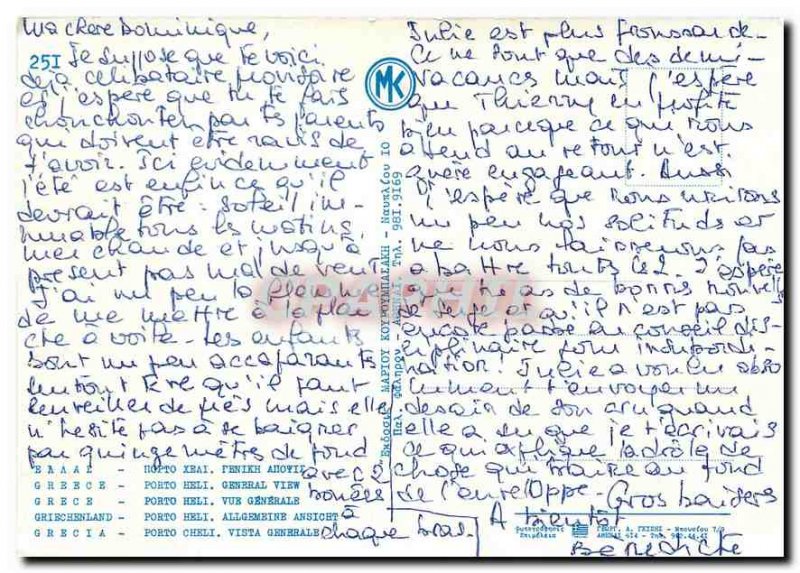 Ma chère Dominique,
25I Je suppose que te voici
de la célibataire provisoire
et j'espère que tu te fais
chouchouter par tes parents
qui doivent être ravis de
t'avoir. Ici évidemment
l'été est enfin ce qu'il
devrait être : soleil im-
muable tous les matins,
mer chaude et jusqu'à
présent pas mal de vent.
J'ai un peu la flemme
de me mettre à la plan
che à voile. Les enfants
sont un peu accaparants
surtout Eve qu'il faut
surveiller de près mais elle
n'hésite pas à se baigner
par quinze mètres de fond
avec 2
bouées
à
chaque bras.
Julie est plus froussarde.
Ce ne sont que des demi-
vacances mais j'espère
que Thierry en profite
bien parceque ce qui nous
attend au retour n'est
guère engageant. Aussi
j'espère que nous unirons
un peu nos solitudes et
ne nous laisserons pas
abattre toutes les 2. J'espère
que tu as de bonnes nouvelles
de Serge et qu'il n'est pas
encore passé au conseil dis-
ciplinaire pour insubordi-
nation! Julie a voulu abso
lument t'envoyer un
dessin de son cru quand
elle a su que je t'écrivais
ce qui explique la drôle de
chose qui traîne au fond
de l'enveloppe. Gros baisers
A bientôt
Bénédicte
MK
Εκδοσις ΜΑΡΙΟΥ ΚΟΥΡΟΥΜΠΑΣΑΚΗ - Ναυπλίου 10
Παλ. Φάληρον - ΑΘΗΝΑΙ, Τηλ. 981.9169
ΕΛΛΑΣ - ΠΟΡΤΟ ΧΕΛΙ. ΓΕΝΙΚΗ ΑΠΟΨΙΣ
GREECE - PORTO HELI. GENERAL VIEW
GRECE - PORTO HELI. VUE GÉNÉRALE
GRIECHENLAND - PORTO HELI. ALLGEMEINE ANSICHT
GRECIA - PORTO CHELI. VISTA GENERALE